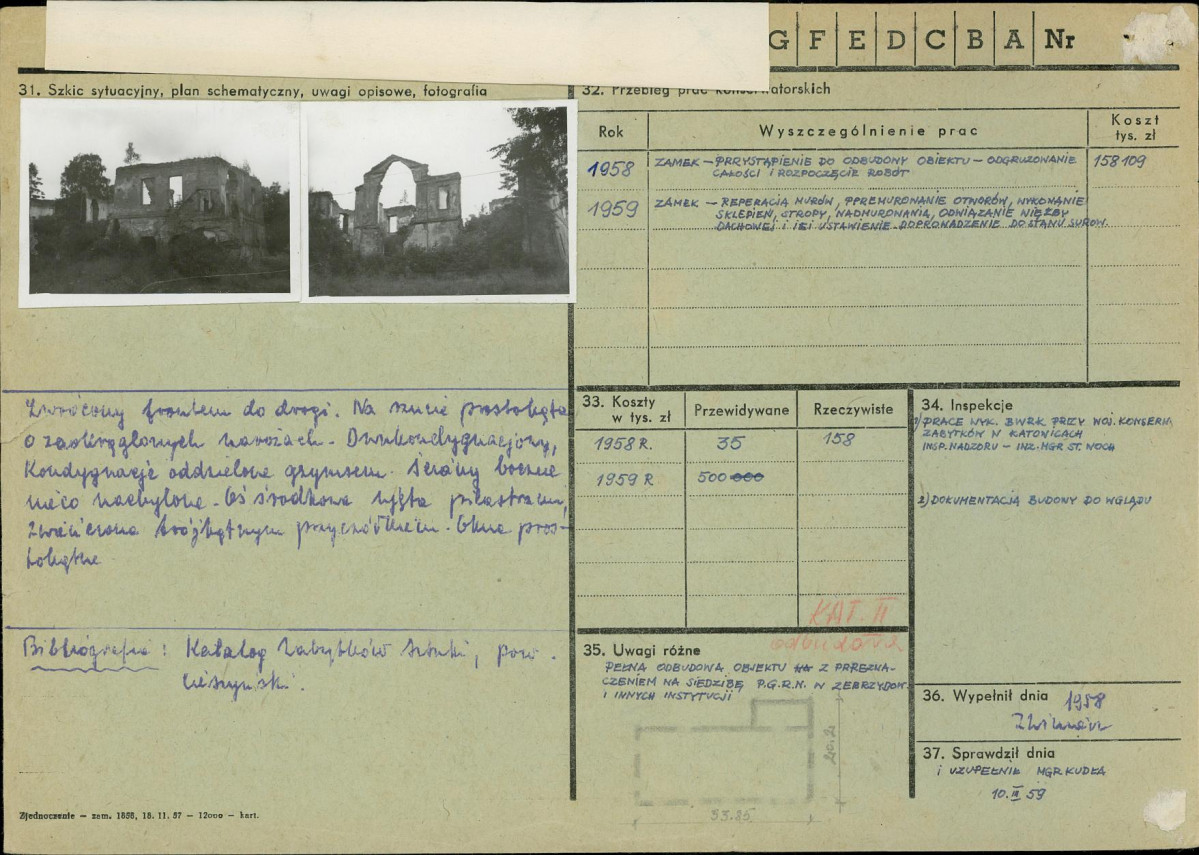 G F E D C B A Nr
31. Szkic sytuacyjny, plan schematyczny, uwagi opisowe, fotografia
Zwrócony frontem do drogi. Na rzucie prostokąta
o zaokrąglonych narożach. Dwukondygnacjowy,
Kondygnacje oddzielone gzymsem. Ściany boczne
nieco nachylone. Oś środkowa ujęta pilastrami,
zwieńczona trójkątnym przyczółkiem. Okna pros-
tokątne.
Bibliografia: Katalog Zabytków Sztuki, pow.
Cieszyński.
Zjednoczenie — zam. 1858, 18. 11. 57 — 12000 — kart.
32. Przebieg prac konserwatorskich
Rok Wyszczególnienie prac Koszt tys. zł
1958 ZAMEK — PRZYSTĄPIENIE DO ODBUDOWY OBIEKTU — ODGRUZOWANIE 158 109
CAŁOŚCI I ROZPOCZĘCIE ROBÓT
1959 ZAMEK — REPERACJA MURÓW, PRZEMUROWANIE OTWORÓW, WYKONANIE
SKLEPIEŃ, STROPY, NADMUROWANIA, ODWIĄZANIE WIĘŹBY
DACHOWEJ I JEJ USTAWIENIE DOPROWADZENIE DO STANU SUROW.
33. Koszty w tys. zł Przewidywane Rzeczywiste
1958 R. 35 158
1959 R. 500 000
KAT. II
odbudowa
34. Inspekcje
1) PRACE WYK. BWRK PRZY WOJ. KONSERW.
ZABYTKÓW W KATOWICACH
INSP. NADZORU — INŻ. MGR ST. NOCH
2) DOKUMENTACJA BUDOWY DO WGLĄDU
35. Uwagi różne
PEŁNA ODBUDOWA OBJEKTU Z PRZEZNA-
CZENIEM NA SIEDZIBĘ P.G.R.N. W ZEBRZYDOW.
I INNYCH INSTYTUCJI
20.2
33.85
36. Wypełnił dnia 1958
37. Sprawdził dnia
i UZUPEŁNIŁ MGR KUDŁA
10. III 59